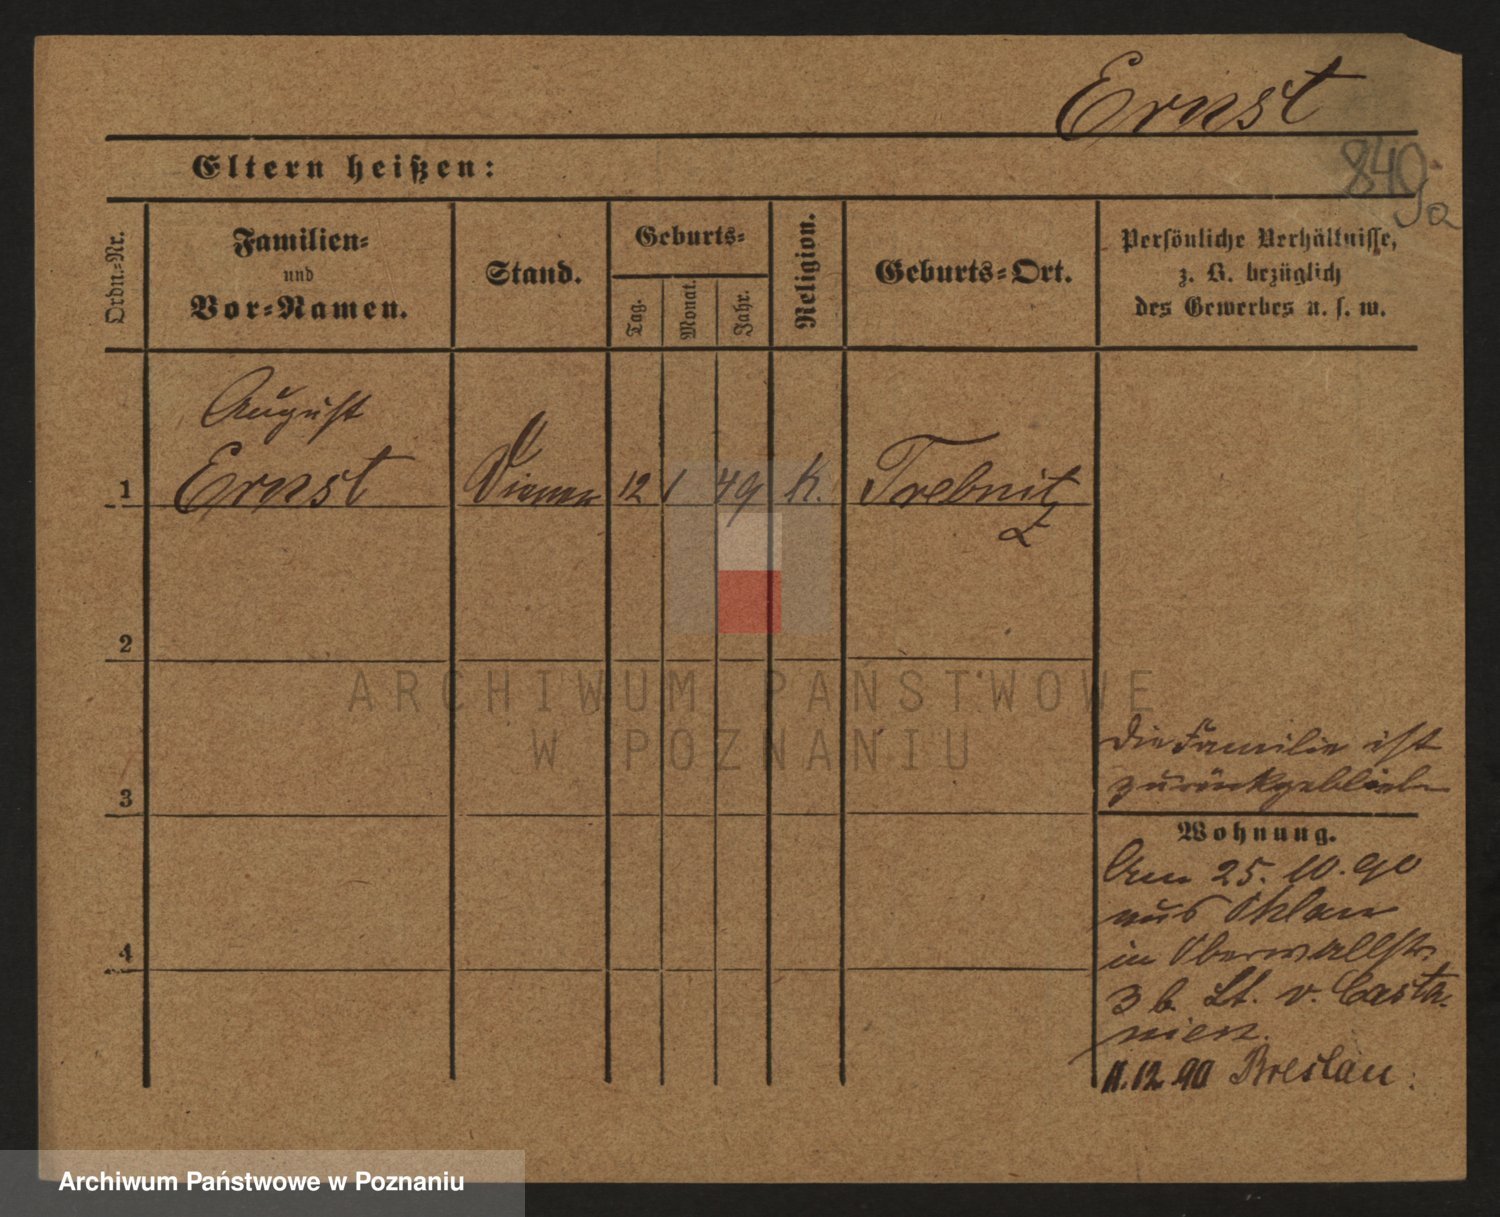 Ernst
840
Ja
Eltern heißen:
Ordn.-Nr.
Familien-
und
Vor-Namen.
Stand.
Geburts-
Tag.
Monat.
Jahr.
Religion.
Geburts-Ort.
Persönliche Verhältnisse,
z. B. bezüglich
des Gewerbes u. s. w.
August
1 Ernst Diener 12 1 49 K. Trebnitz
2
3
4
ARCHIWUM PAŃSTWOWE
W POZNANIU
Die Familie ist
zurückgeblieben
Wohnung.
Am 25. 10. 90
aus Ohlau
in Oberwallstr.
3 b. Lt. v. Casta-
nier.
11.12.90 Breslau.
Archiwum Państwowe w Poznaniu